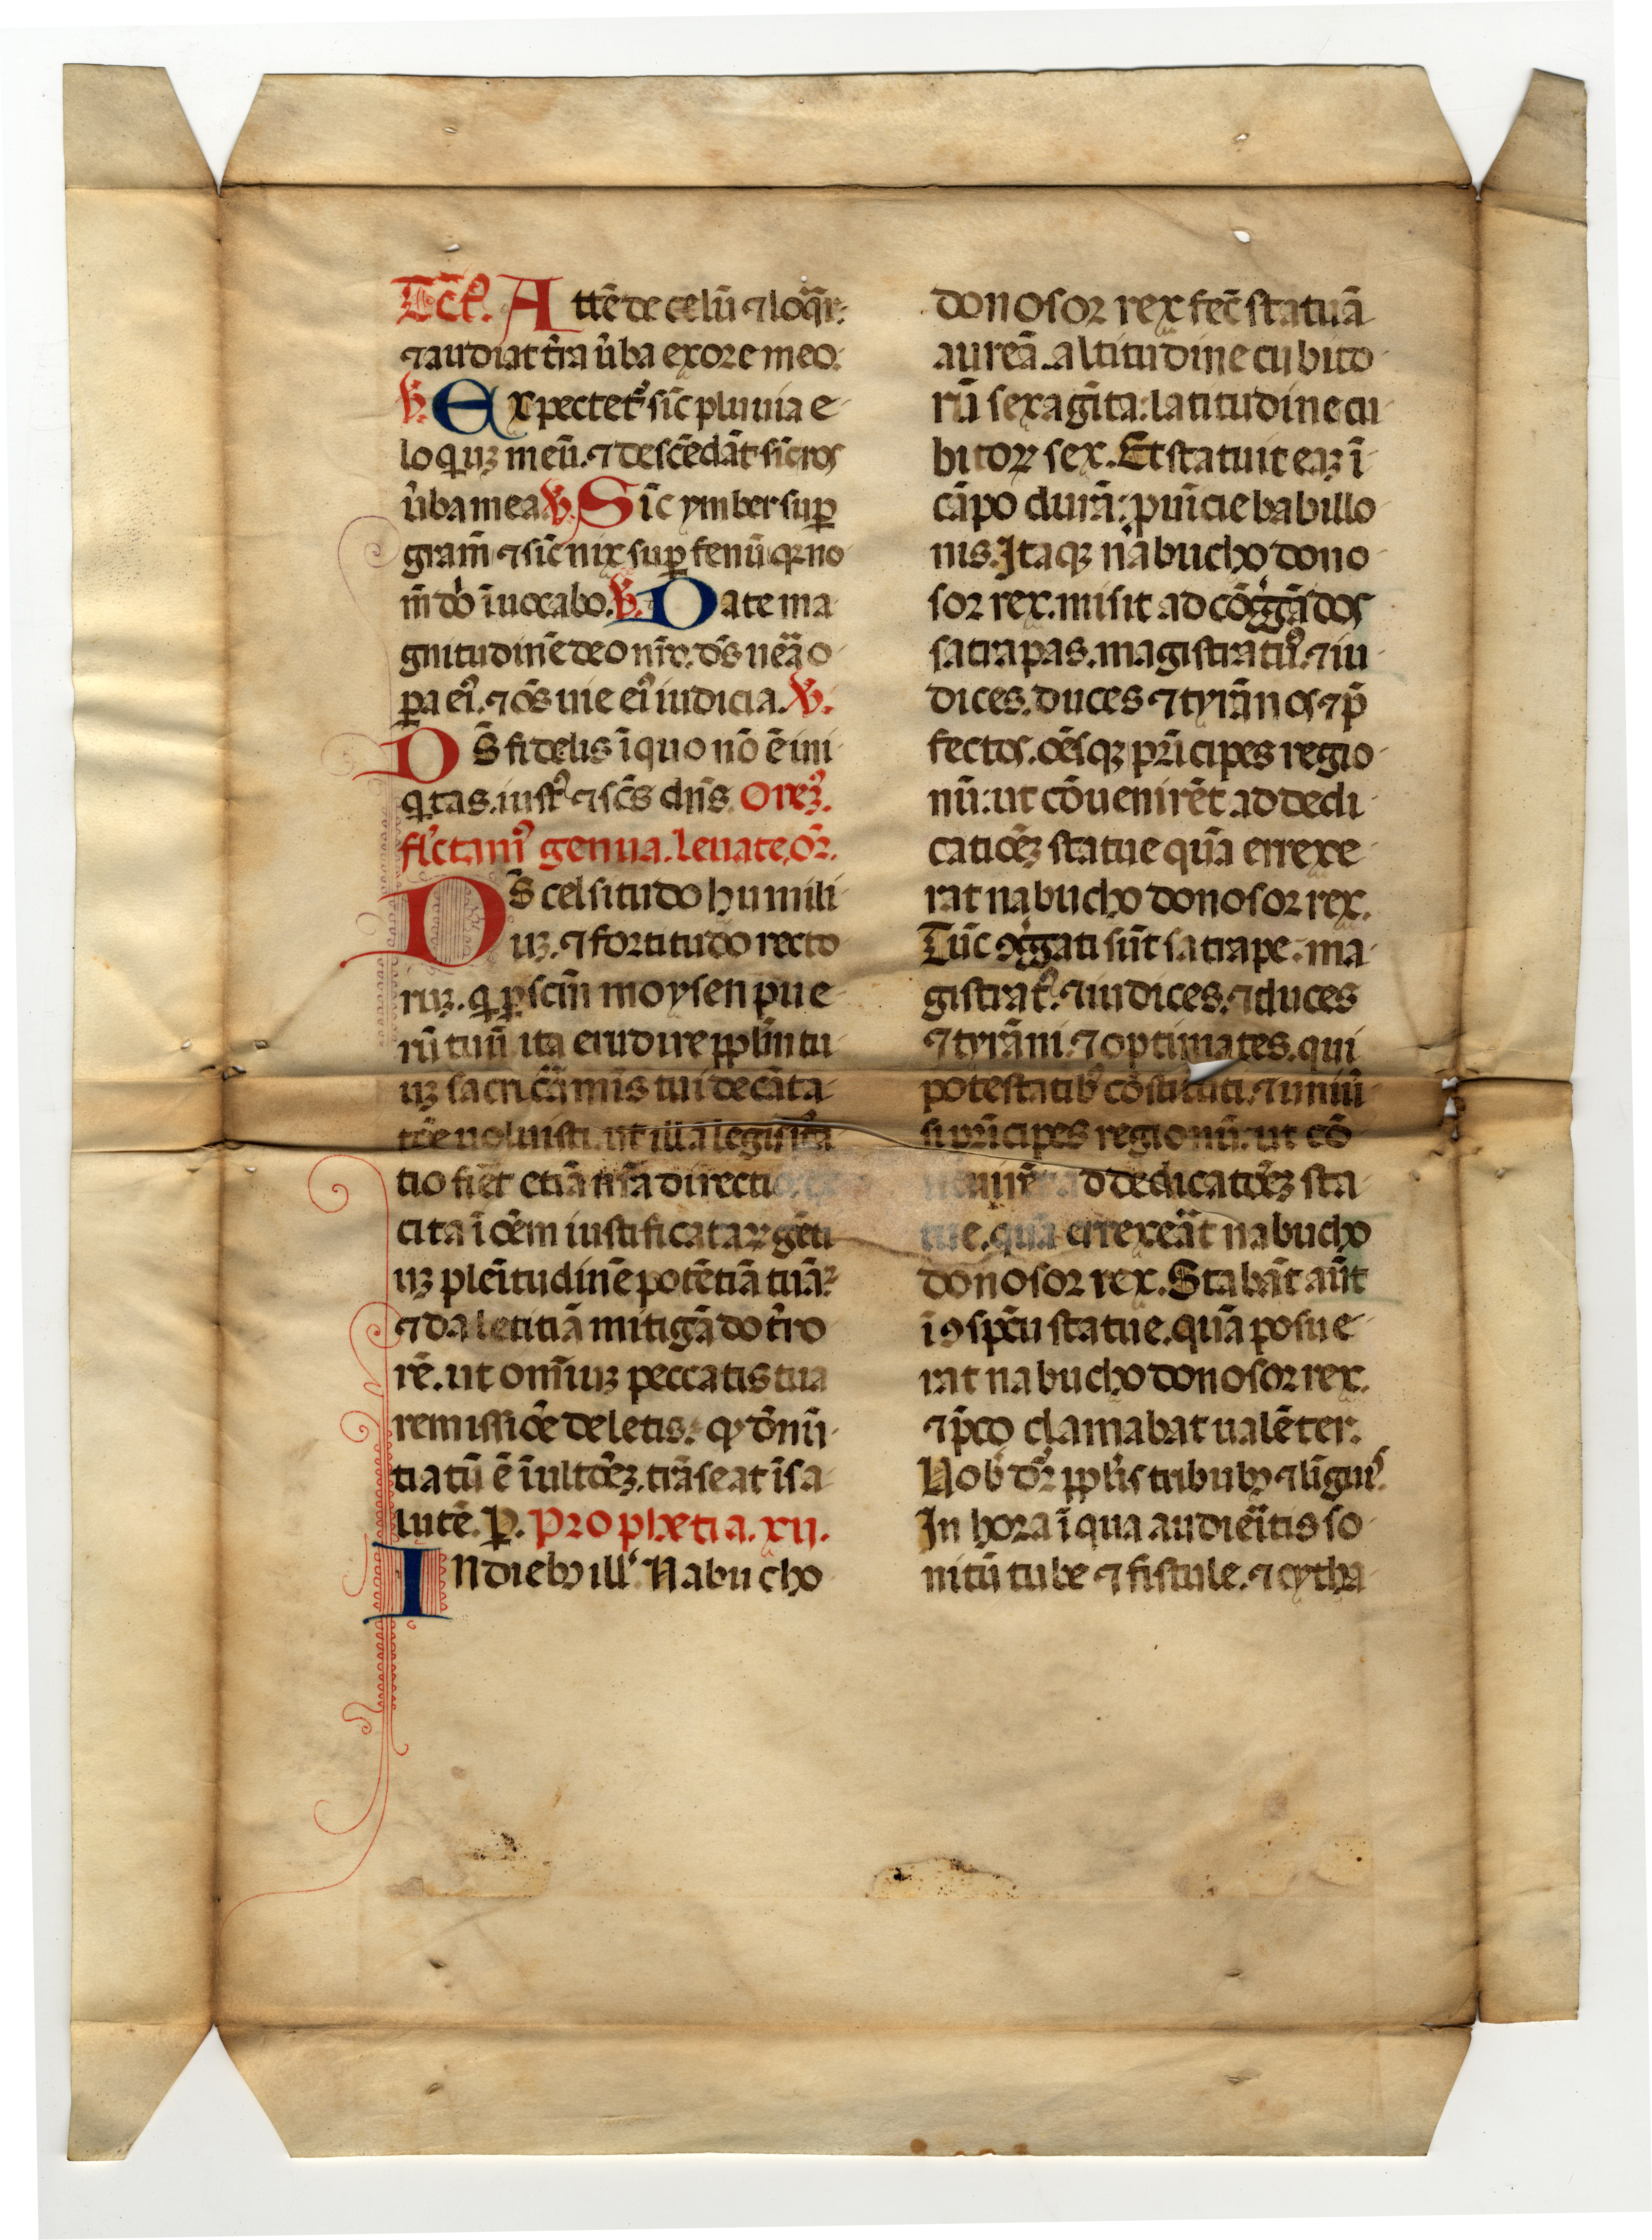 Tct̉. Attē de celū ⁊ loq̄r:
⁊ audiat tr̄a ũba ex ore meo.
℣. Expectet᷒ sic̄ pluuia e
loquiꝫ meū. ⁊ descēdāt sic̄ ros
ũba mea ℣. Sic̄ ymber suꝑ
gram̄ ⁊ sic̄ nix suꝑ fenū qꝛ no
m̄ dn̄i īuocabo. ℣. Date ma
gnitudinē deo nr̄o. ds̄ uēa o
ꝑa ei᷒. ⁊ oēs uie ei᷒ iudicia. ℣.
Ds̄ fidelis ī quo nō ē ini
qͥtas. iust᷒ ⁊ scs̄ dn̄s. Oreꝫ.
flc̄tam᷒ genua. leuate. or̄.
Ds̄ celsitudo humili
uꝫ. ⁊ fortitudo recto
ruꝫ. qͥ ꝑ scm̄ moysen pue
rū tuū ita erudire ppl̄m tu
uꝫ sacri cām̄is tui decāta
tōe uoluisti. ut illa legis it̄a
tio fiet etiā nr̄a directio
cita ī oēm iustificataꝝ gēti
uꝫ plēitudinē potētiā tuā.
⁊ da letitiā mitigādo tr̄o
rē. ut om̄iuꝫ peccatis tua
remissiōe deletis. qͩ dēnū
tiatū ē ī ultōeꝫ. trāseat ī sa
lutē. P. Prophetia. xii.
In diebꝫ ill᷒. Nabucho
donosor rex fec̄ statuā
aureā. altitudine cubito
rū sexagīta: latitudine cu
bitoꝝ sex. Et statuit eaꝫ ī
cāpo durā: ꝓuīcie babillo
nis. Itaqꝫ nabucho dono
sor rex. misit ad cōg̃gādos
satrapas. magistrat᷒. ⁊ iu
dices. duces ⁊ tyrānos ⁊ p̄
fectos. oēsqꝫ prīcipes regio
nū: ut cōuenirēt. ad dedi
catiōeꝫ statue quā errexe
rat nabucho donosor rex.
Tūc ꝯg̃gati sūt satrape. ma
gistrat᷒. ⁊ iudices. ⁊ duces
⁊ tyrāni. ⁊ optimates. qui
potestatibꝰ cōstituti. ⁊ uniũ
si prīcipes regionū: ut cō
uenirēt ad dedicatiōeꝫ sta
tue. quā errexeāt nabucho
donosor rex. Stabāt aūt
ī ꝯspc̄tu statue. quā posue
rat nabucho donosor rex.
⁊ p̄co clamabat ualēter:
Nob̄ dr̄ ppl̄is tribubꝫ ⁊ līguis.
In hora ī qua audiēitis so
nitū tube ⁊ fistule. ⁊ cytha